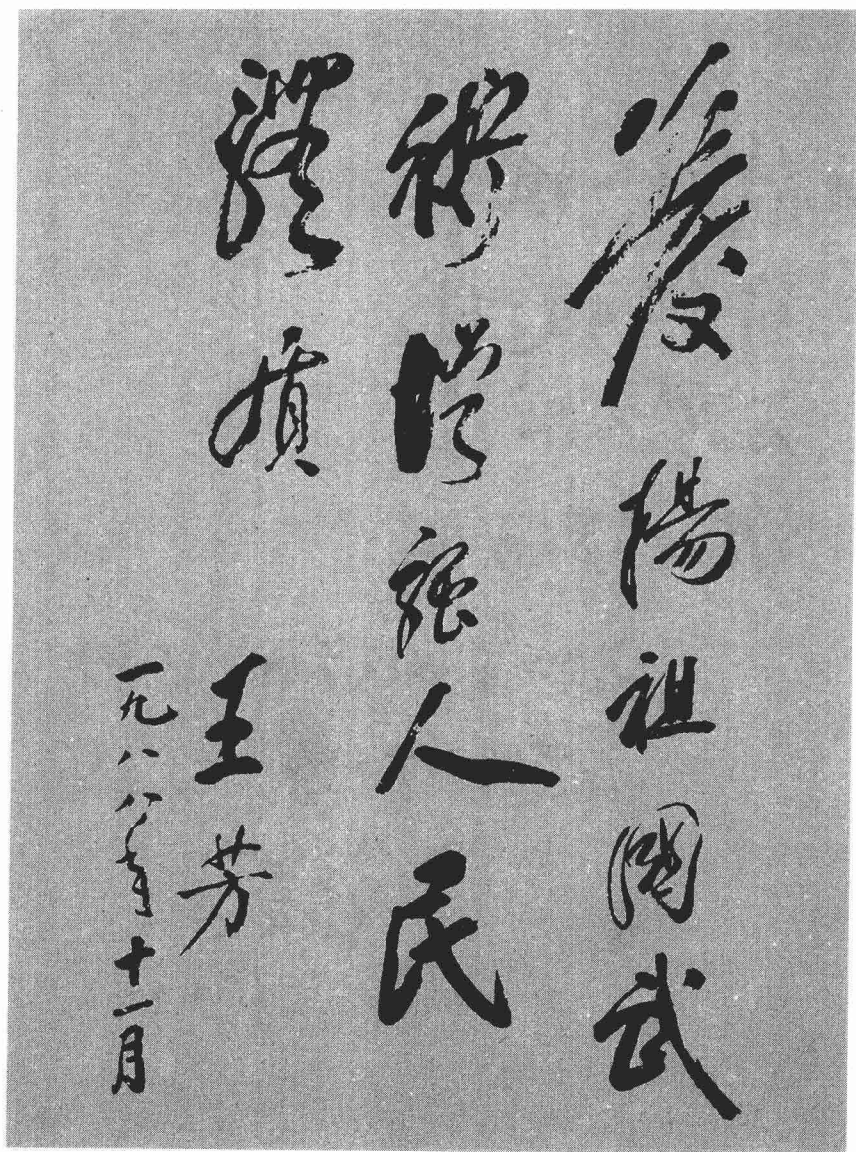 發揚祖國武
術增強人民
體質 王芳
一九八八年十一月